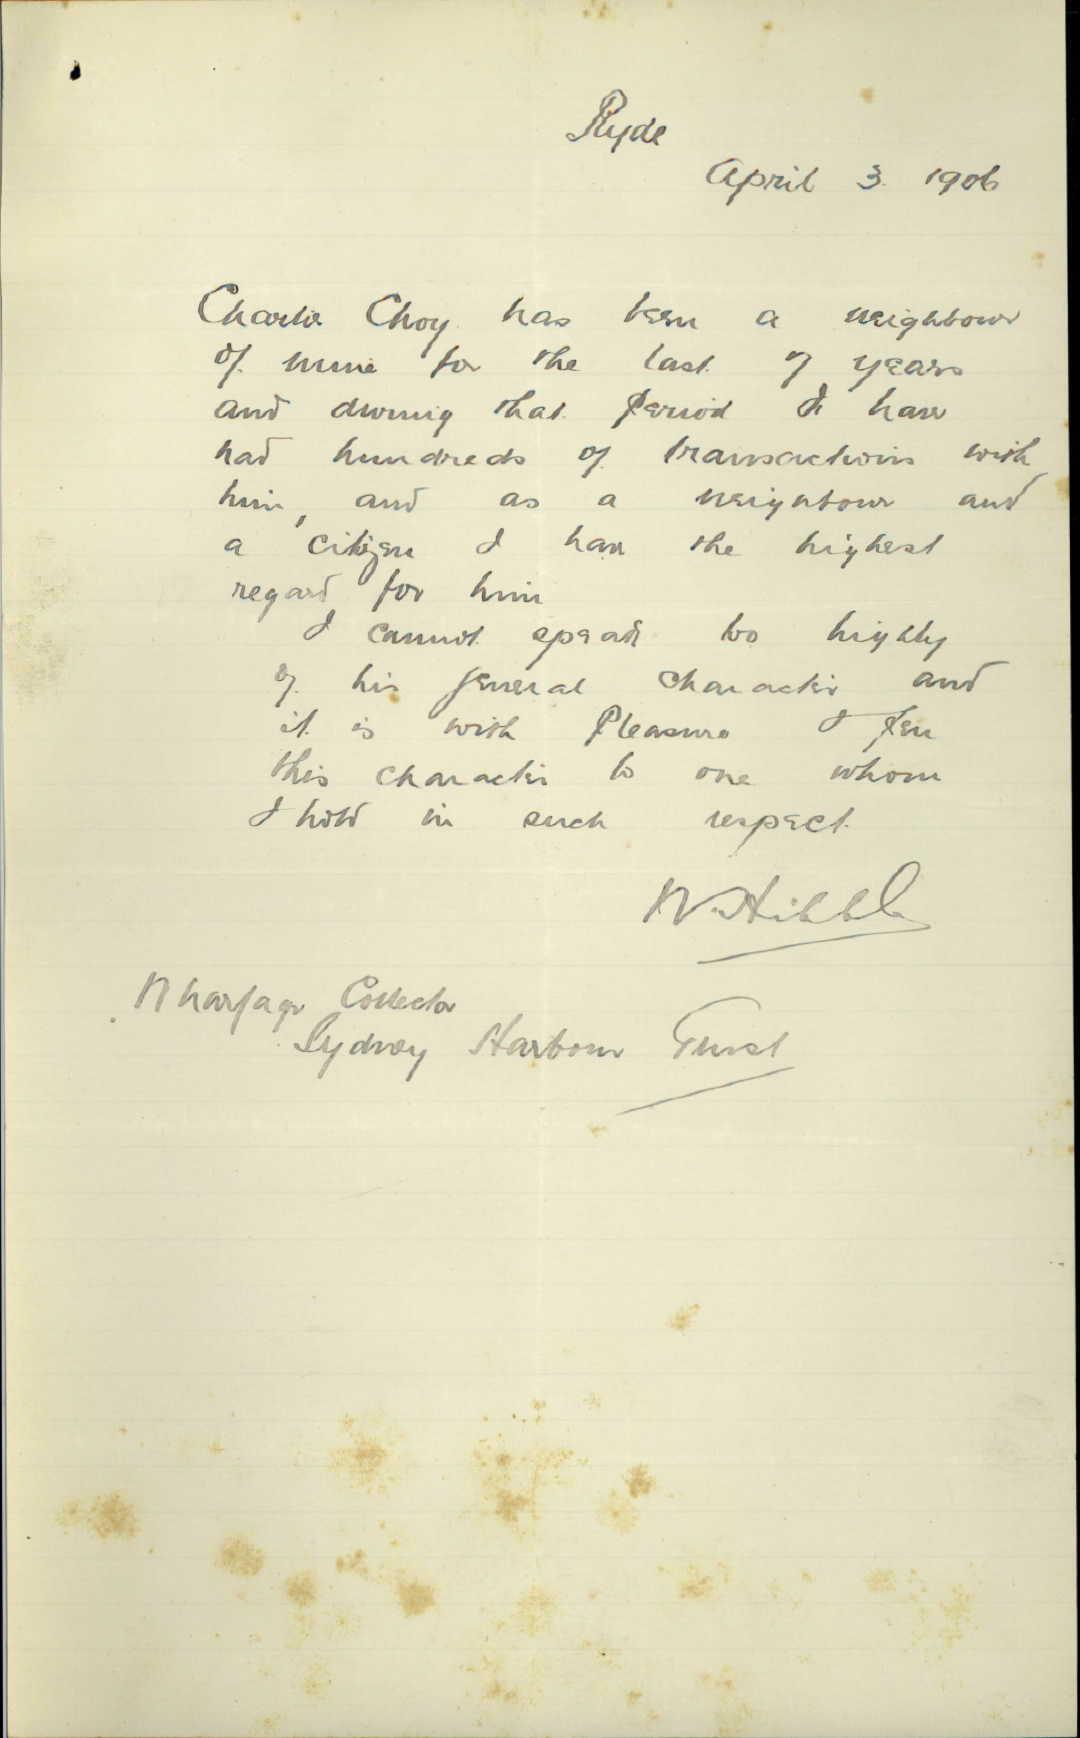 Ryde
April 3. 1906
Charlie Choy has been a neighbour
of mine for the last 7 years
and during that period I have
had hundreds of transactions with
him, and as a neighbour and
a citizen I have the highest
regard for him
I cannot speak too highly
of his general character and
it is with pleasure I pen
this character to one whom
I hold in such respect.
W. Hibble
Wharfage Collector
Sydney Harbour Trust